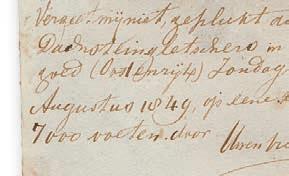 Vergeet mij niet, geplukt a
Dachsteingletschers in
goed (Oostenrijk) Zondag
Augustus 1849, op eene
7000 voeten door